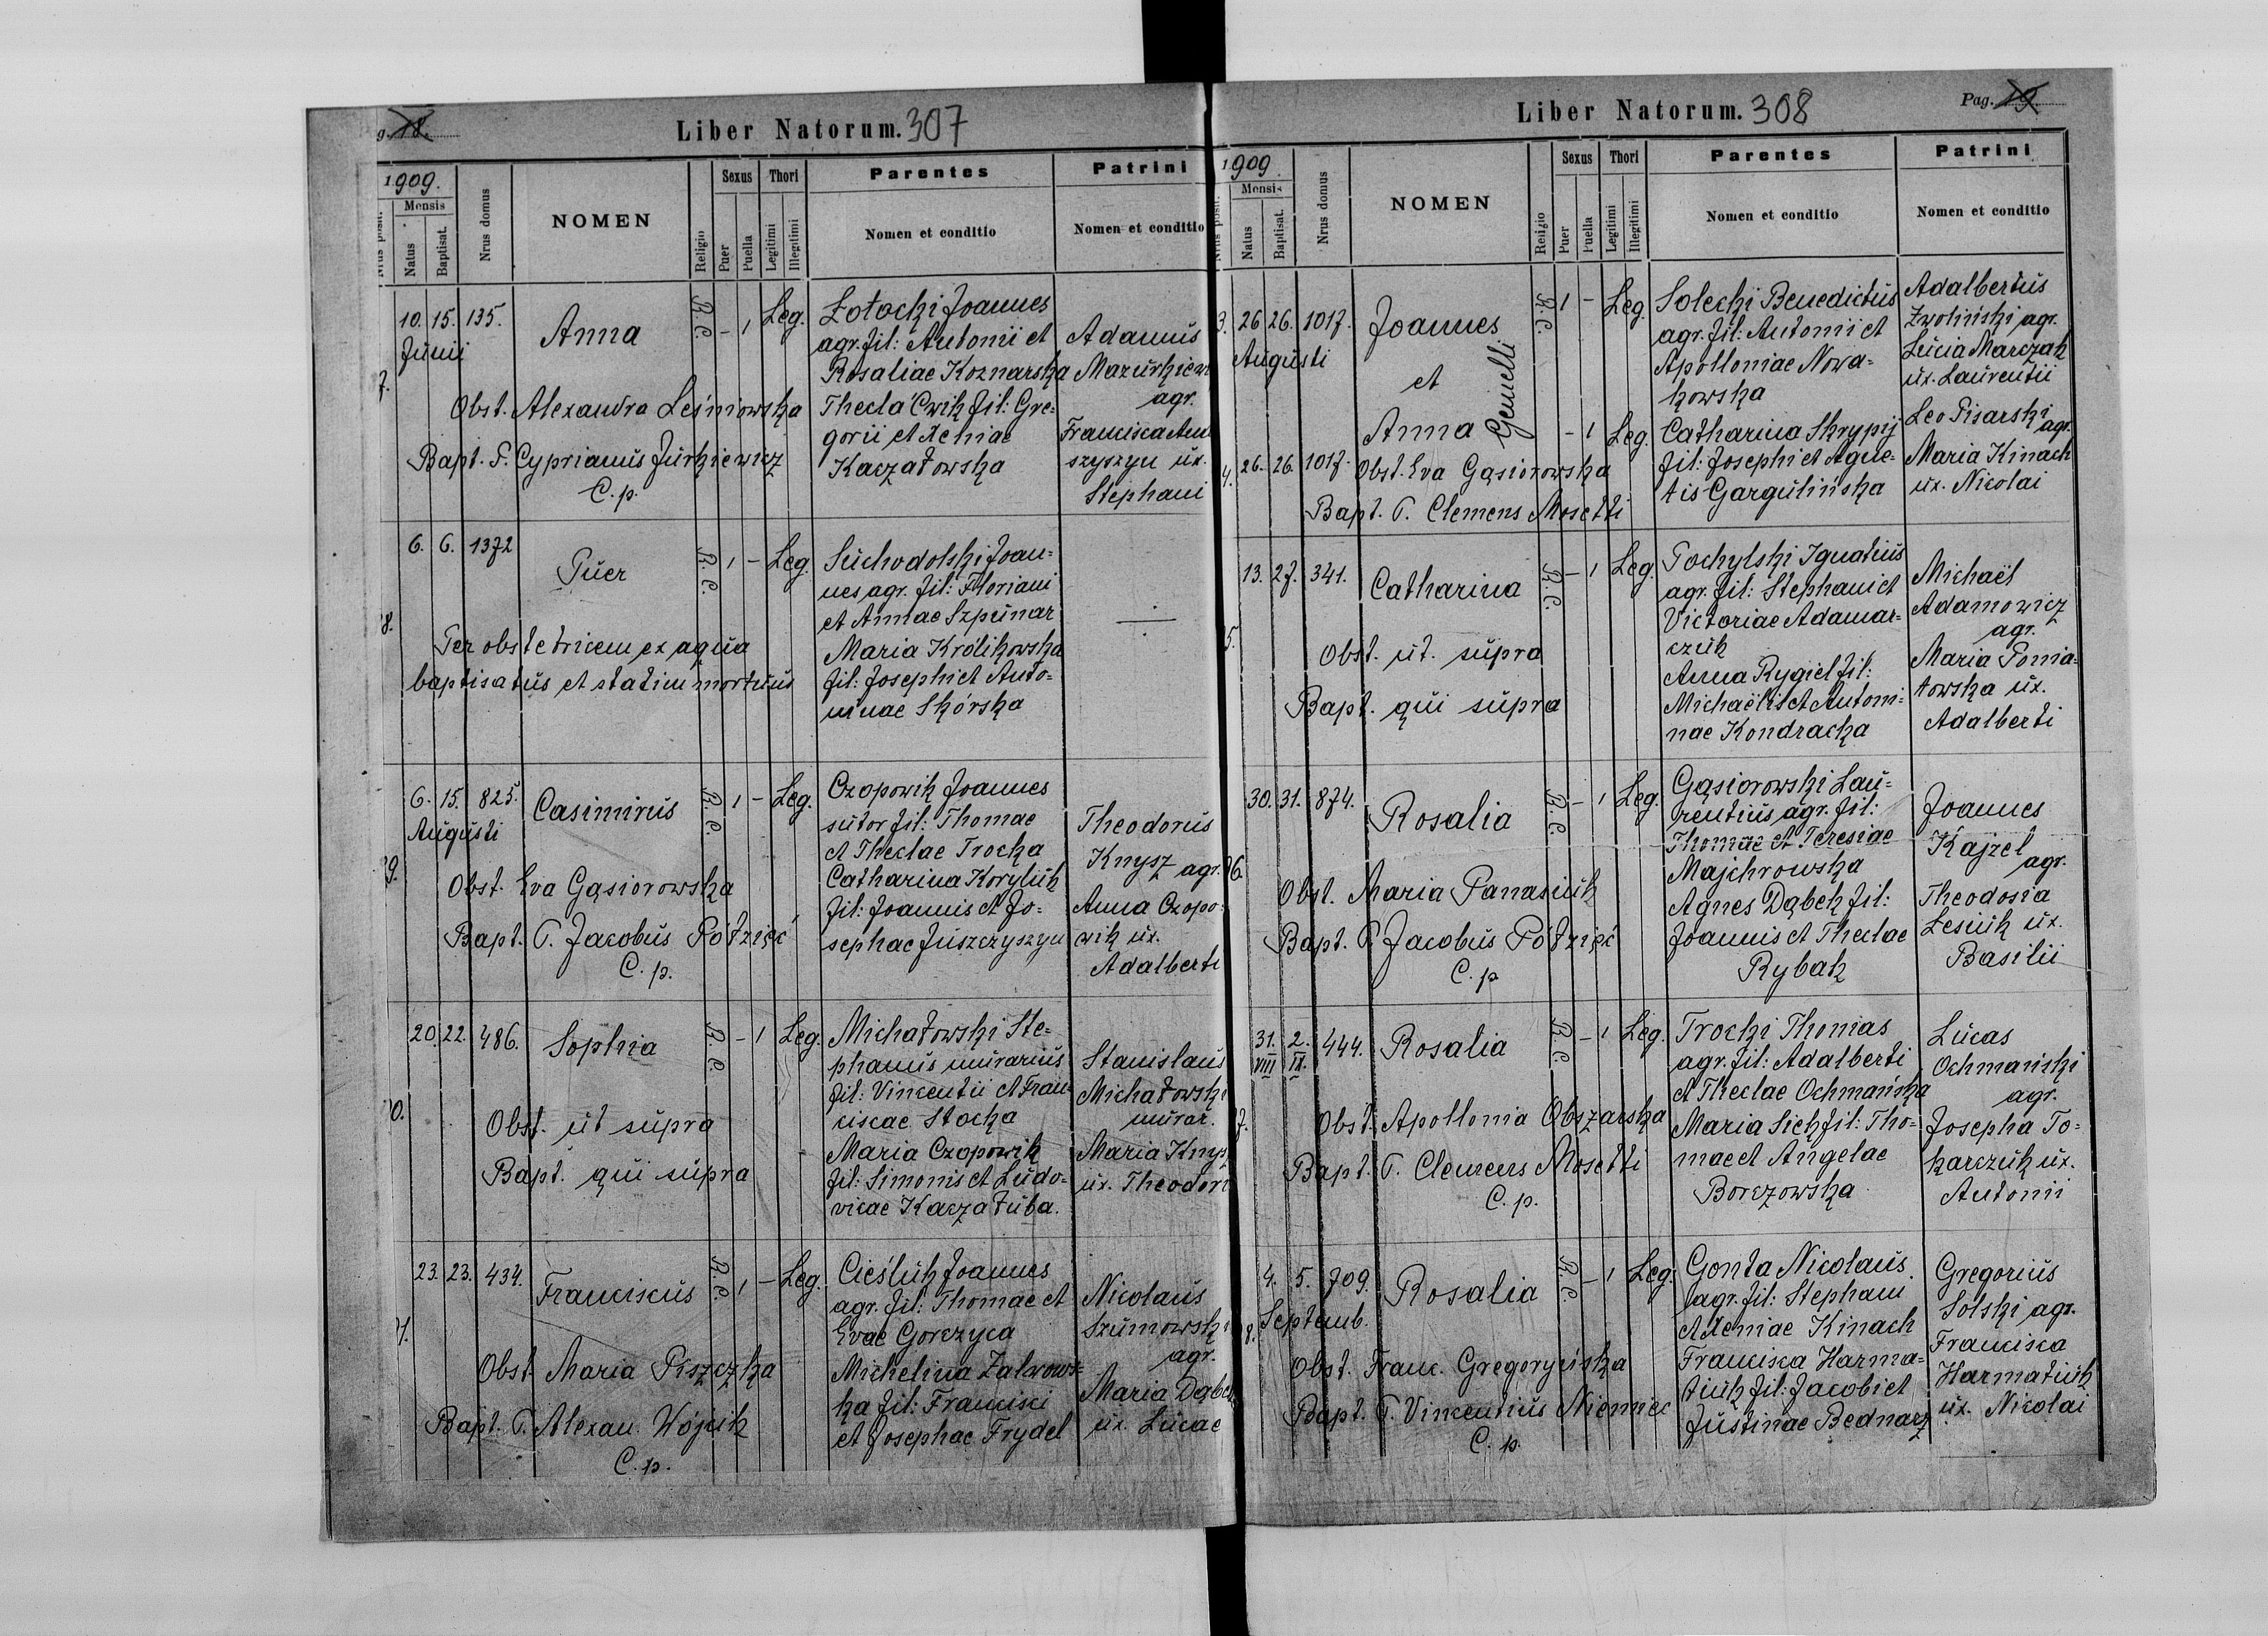 g. 18.
Liber Natorum. 307
1909.
Mensis
Nrus posit.
Natus
Baptisat.
Nrus domus
NOMEN
Religio
Sexus
Puer
Puella
Thori
Legitimi
Illegitimi
Parentes
Nomen et conditio
Patrini
Nomen et conditio
7.
10. 15. 135.
Junii
Anna
R. C. - 1 Leg.
Obst. Alexandra Leśniowska
Bapt. P. Cyprianus Jurkiewicz
C. p.
Zołocki Joannes
agr. fil: Antonii et
Rosaliae Koznarska
Thecla Ćwik fil: Gre-
gorii et Xeniae
Kaczałowska
Adamus
Mazurkiew
agr.
Francisca Am
szyszyn ux.
Stephani
8.
6. 6. 1372
Puer
R. C. 1 - Leg.
Per obstetricem ex aqua
baptisatus et statim mortuus
Suchodolski Joan-
nes agr. fil: Floriani
et Annae Szpunar
Maria Królikowska
fil: Josephi et Anto-
ninae Skórska
9.
6. 15. 825.
Augusti
Casimirus
R. C. 1 - Leg.
Obst. Eva Gąsiorowska
Bapt. P. Jacobus Półzięć
C. p.
Czopowik Joannes
sutor fil: Thomae
et Theclae Trocka
Catharina Koryluk
fil: Joannis et Jo-
sephae Juszczyszyn
Theodorus
Knysz agr.
Anna Czopo-
wik ux.
Adalberti
0.
20. 22. 486.
Sophia
R. C. - 1 Leg.
Obst. ut supra
Bapt. qui supra
Michałowski Ste-
phanus murarius
fil: Vincentii et Fran-
ciscae Stocka
Maria Czopowik
fil: Simonis et Ludo-
vicae Kaczałuba.
Stanislaus
Michałowski
murar.
Maria Knysz
ux. Theodori
1.
23. 23. 434.
Franciscus
R. C. 1 - Leg.
Obst. Maria Piszczka
Bapt. P. Alexan. Wójcik
C. p.
Cieśluk Joannes
agr. fil: Thomae et
Evae Gorczyca
Michelina Zalwows-
ka fil: Francisci
et Josephae Frydel
Nicolaus
Szumowski
agr.
Maria Dąbek
ux. Lucae
Liber Natorum. 308
Pag. 19.
1909.
Mensis
Nrus posit.
Natus
Baptisat.
Nrus domus
NOMEN
Religio
Sexus
Puer
Puella
Thori
Legitimi
Illegitimi
Parentes
Nomen et conditio
Patrini
Nomen et conditio
3.
26 26. 1017.
Augusti
Joannes
et
Anna
Gemelli
R. C. 1 - Leg.
- 1 Leg.
4.
26. 26. 1017.
Obst. Eva Gąsiorowska
Bapt. P. Clemens Mosetti
Solecki Benedictus
agr. fil: Antonii et
Apolloniae Nowa-
kowska
Catharina Skrypij
fil: Josephi et Agne-
tis Gargulińska
Adalbertus
Zwoliński agr.
Lucia Marczak
ux. Laurentii
Leo Pisarski
agr.
Maria Kinach
ux. Nicolai
5.
13. 27. 341.
Catharina
R. C. - 1 Leg.
Obst. ut. supra
Bapt. qui supra
Pochylski Ignatius
agr. fil: Stephani et
Victoriae Adamar-
czuk
Anna Rygiel fil:
Michaëlis et Antoni-
nae Kondracka
Michaël
Adamowicz
agr.
Maria Ponia-
towska ux.
Adalberti
6.
30. 31. 874.
Rosalia
R. C. - 1 Leg.
Obst. Maria Panasiuk
Bapt. P. Jacobus Półzięć
C. p
Gąsiorowski Lau-
rentius agr. fil:
Thomae et Teresiae
Majchrowska
Agnes Dąbek fil:
Joannis et Theclae
Rybak
Joannes
Kajzel
agr.
Theodosia
Lesiuk ux.
Basilii
7.
31. 2. 444.
VIII IX.
Rosalia
R. C. - 1 Leg.
Obst. Apollonia Obszarska
Bapt. P. Clemens Mosetti
C. p.
Trocki Thomas
agr. fil: Adalberti
et Theclae Ochmańska
Maria Sich fil: Tho-
mae et Angelae
Borczowska
Lucas
Ochmański
agr.
Josepha To-
karczuk ux.
Antonii
8.
4. 5. 709.
Septemb.
Rosalia
R. C. - 1 Leg.
Obst. Franc. Gregorycińska
Bapt. P. Vincentius Niemiec
C. p.
Gonta Nicolaus
agr. fil: Stephani
et Xeniae Kinach
Francisca Harma-
tiuk fil: Jacobi et
Justinae Bednarz
Gregorius
Solski agr.
Francisca
Harmatiuk
ux. Nicolai